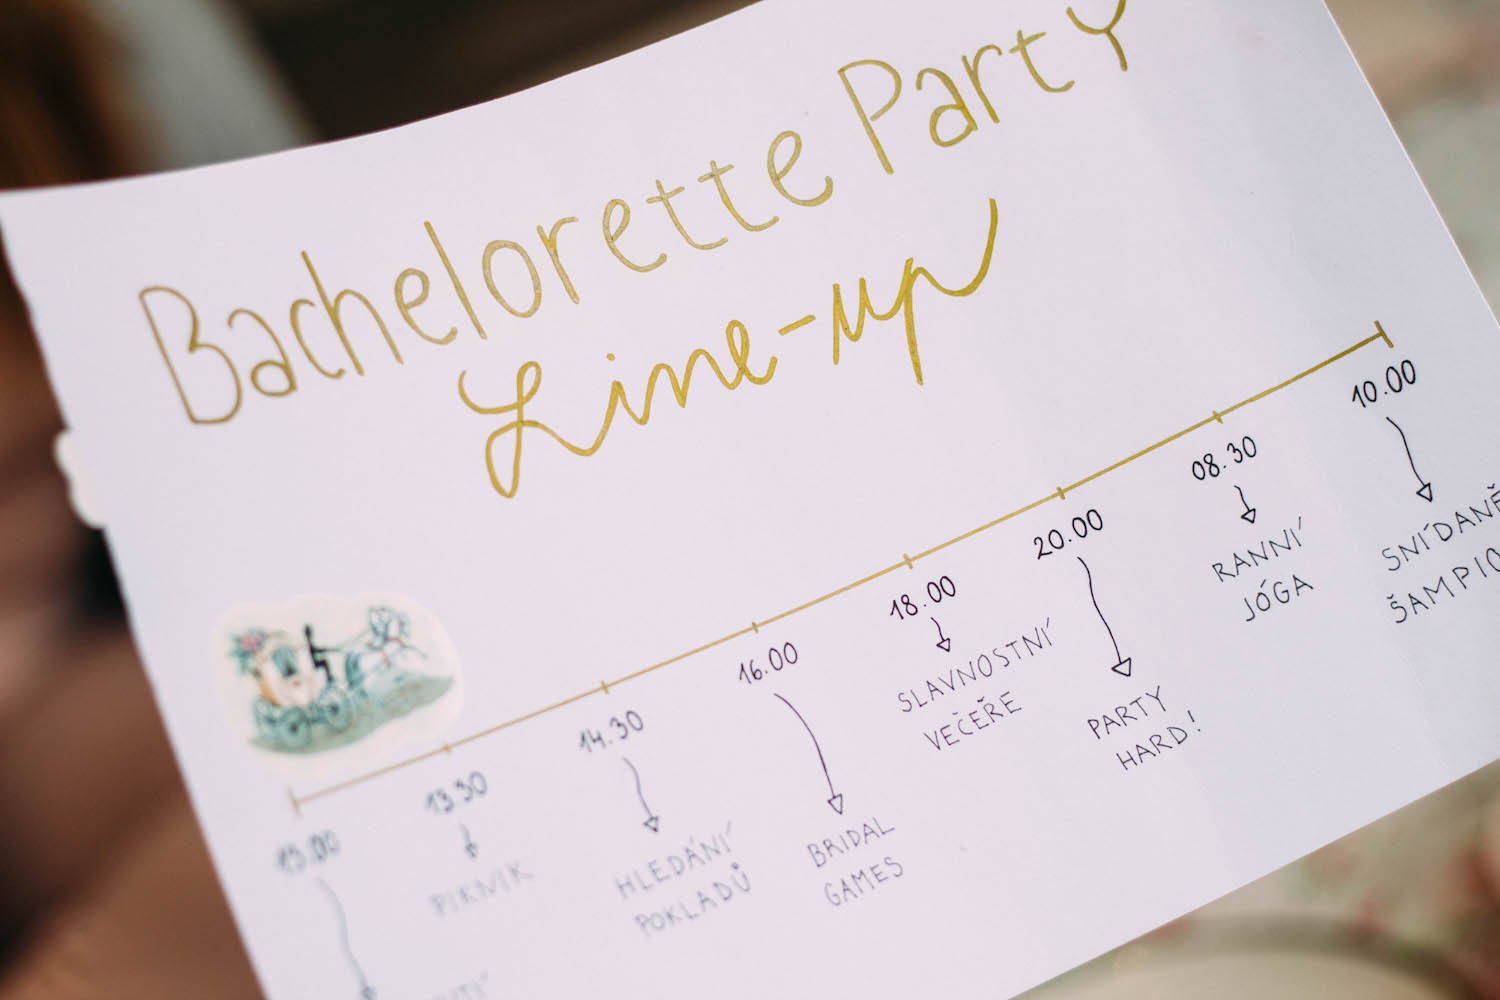 Bachelorette Party
Line-up
13.00
13.30
PIKNIK
14.30
HLEDÁNÍ
POKLADŮ
16.00
BRIDAL
GAMES
18.00
SLAVNOSTNÍ
VEČEŘE
20.00
PARTY
HARD!
08.30
RANNÍ
JÓGA
10.00
SNÍDANĚ
ŠAMPIO